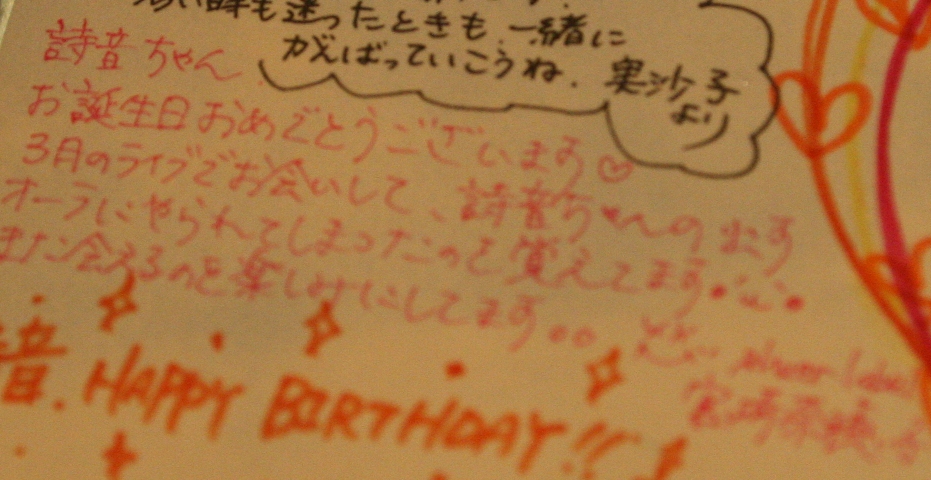 迷ったときも、一緒に
がんばっていこうね。
実沙子
より
詩音ちゃん
お誕生日おめでとうございます♡
3月のライブでお会いして、詩音ちゃんの出す
オーラにやられてしまったのを覚えてます
また会えるのを楽しみにしてます。。
音. HAPPY BIRTHDAY!!